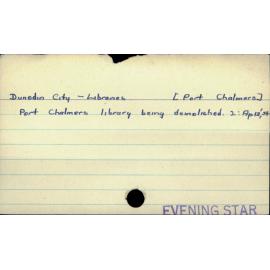 Dunedin City - Libraries [Port Chalmers]
Port Chalmers library being demolished. 2: Ap
EVENING STAR